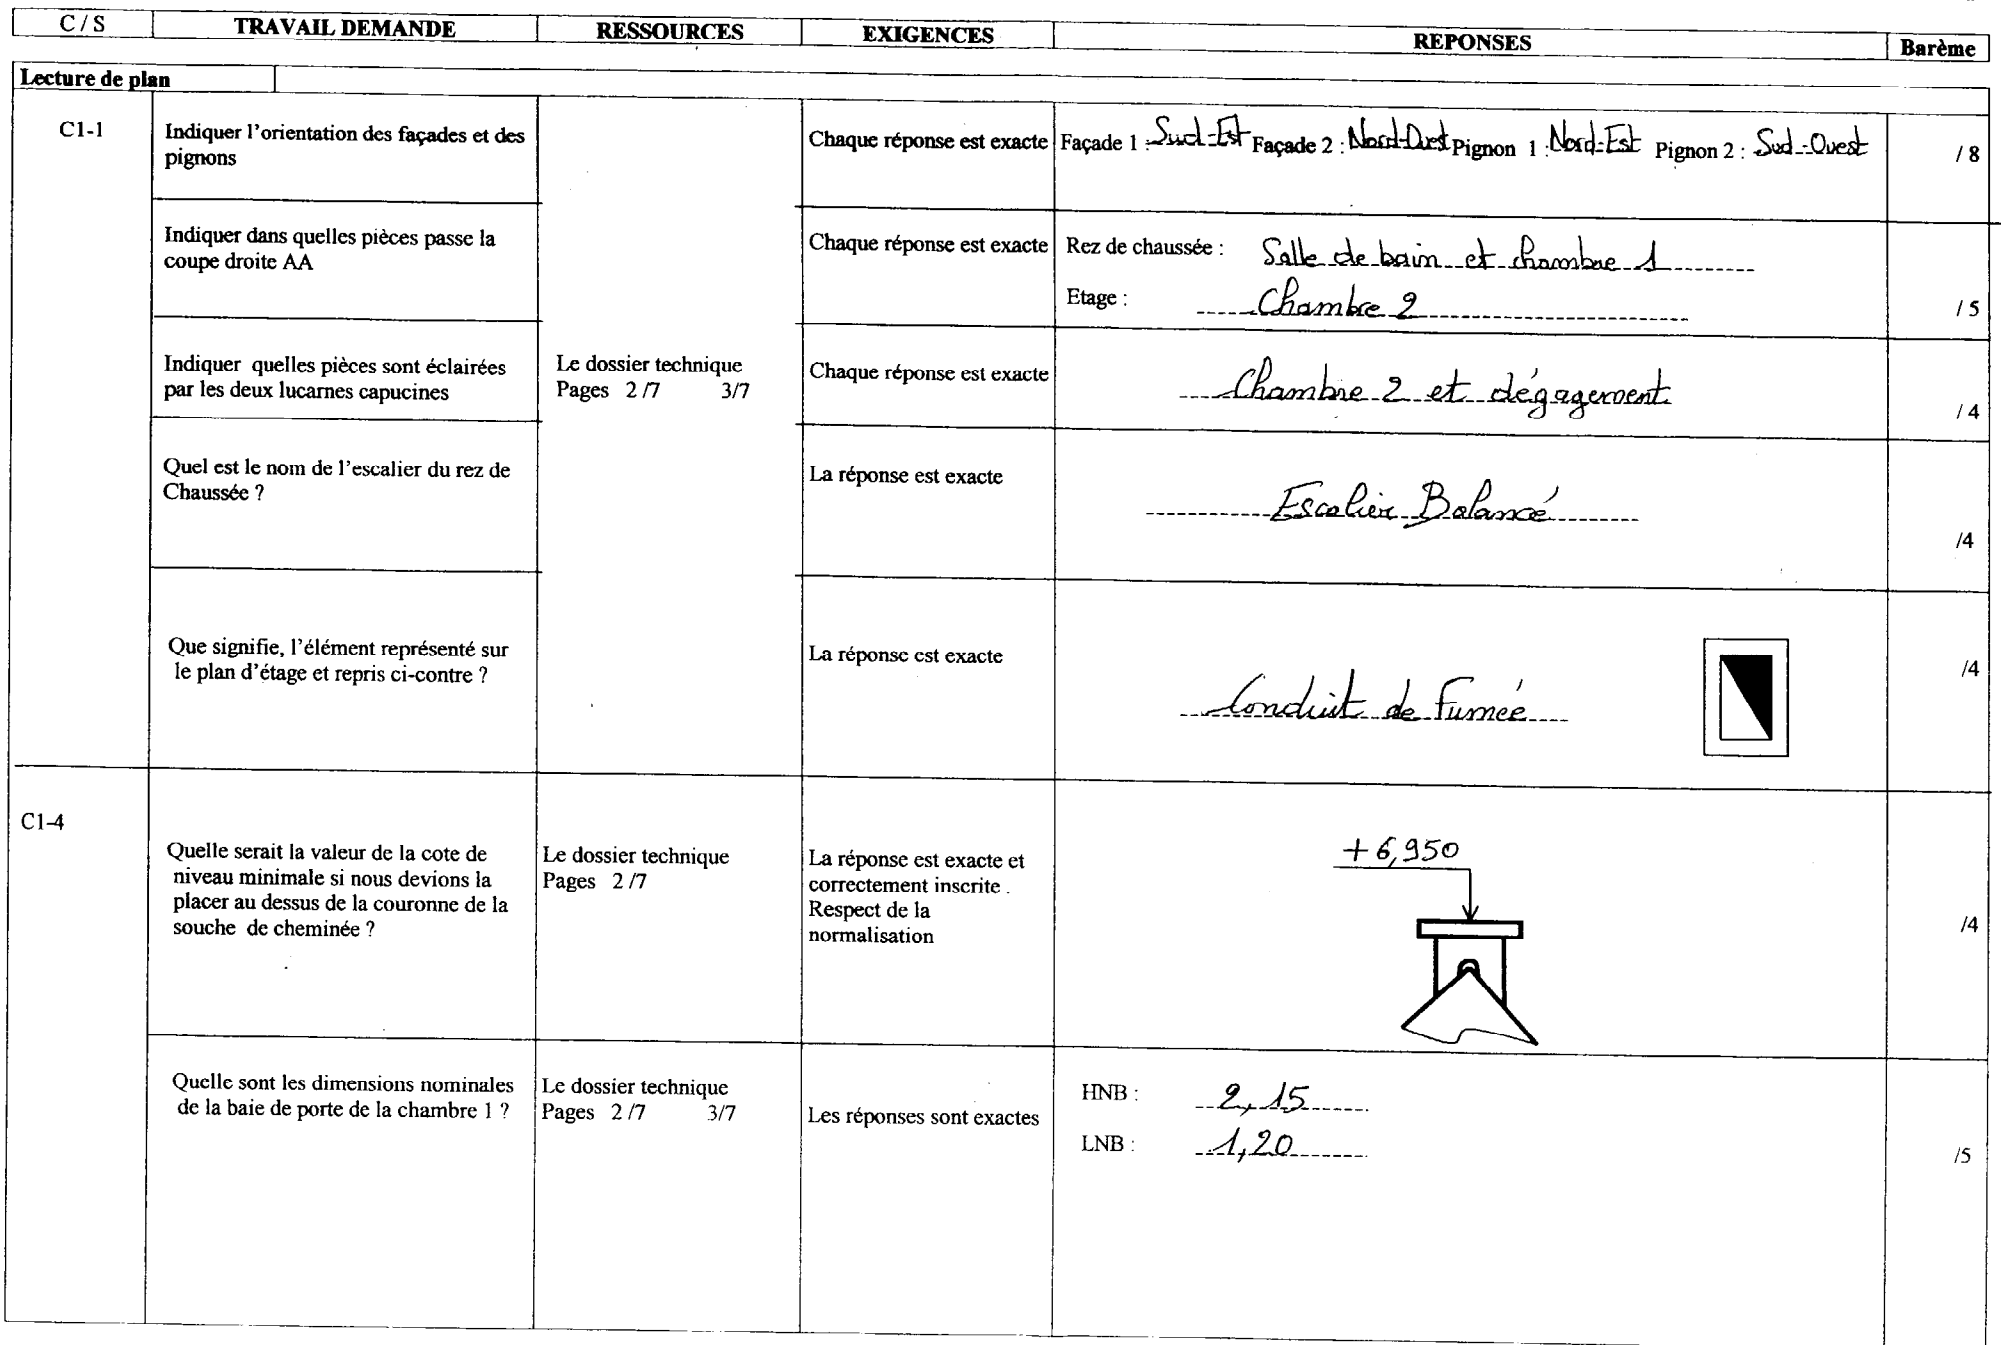 C / S TRAVAIL DEMANDE RESSOURCES EXIGENCES REPONSES Barème
Lecture de plan
C1-1
Indiquer l'orientation des façades et des
pignons
Chaque réponse est exacte
Façade 1 : Sud-Est Façade 2 : Nord-Ouest Pignon 1 : Nord-Est Pignon 2 : Sud-Ouest
/ 8
Indiquer dans quelles pièces passe la
coupe droite AA
Chaque réponse est exacte
Rez de chaussée : Salle de bain et chambre 1
Etage : Chambre 2
/ 5
Indiquer quelles pièces sont éclairées
par les deux lucarnes capucines
Le dossier technique
Pages 2 /7 3/7
Chaque réponse est exacte
Chambre 2 et dégagement
/ 4
Quel est le nom de l'escalier du rez de
Chaussée ?
La réponse est exacte
Escalier Balancé
/4
Que signifie, l'élément représenté sur
le plan d'étage et repris ci-contre ?
La réponse est exacte
Conduit de Fumée
/4
C1-4
Quelle serait la valeur de la cote de
niveau minimale si nous devions la
placer au dessus de la couronne de la
souche de cheminée ?
Le dossier technique
Pages 2 /7
La réponse est exacte et
correctement inscrite .
Respect de la
normalisation
+ 6,950
/4
Quelle sont les dimensions nominales
de la baie de porte de la chambre 1 ?
Le dossier technique
Pages 2 /7 3/7
Les réponses sont exactes
HNB : 2,15
LNB : 1,20
/5